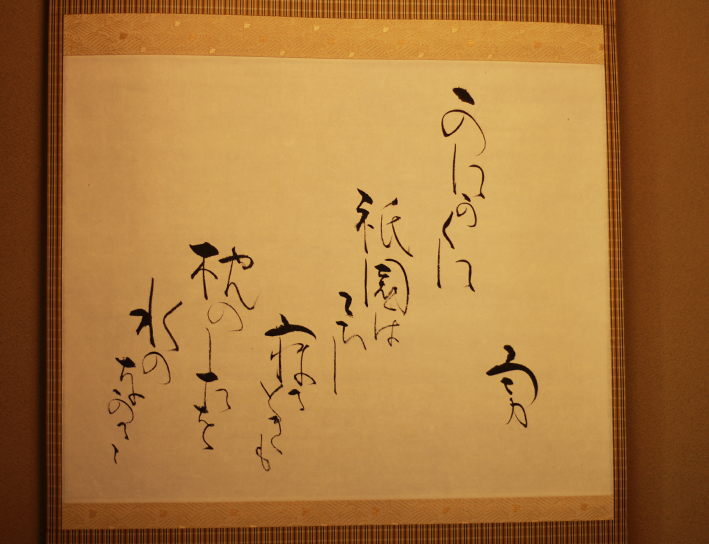 勇
かにかくに
祇園は
こひし
寝るときも
枕のしたを
水の
ながるゝ